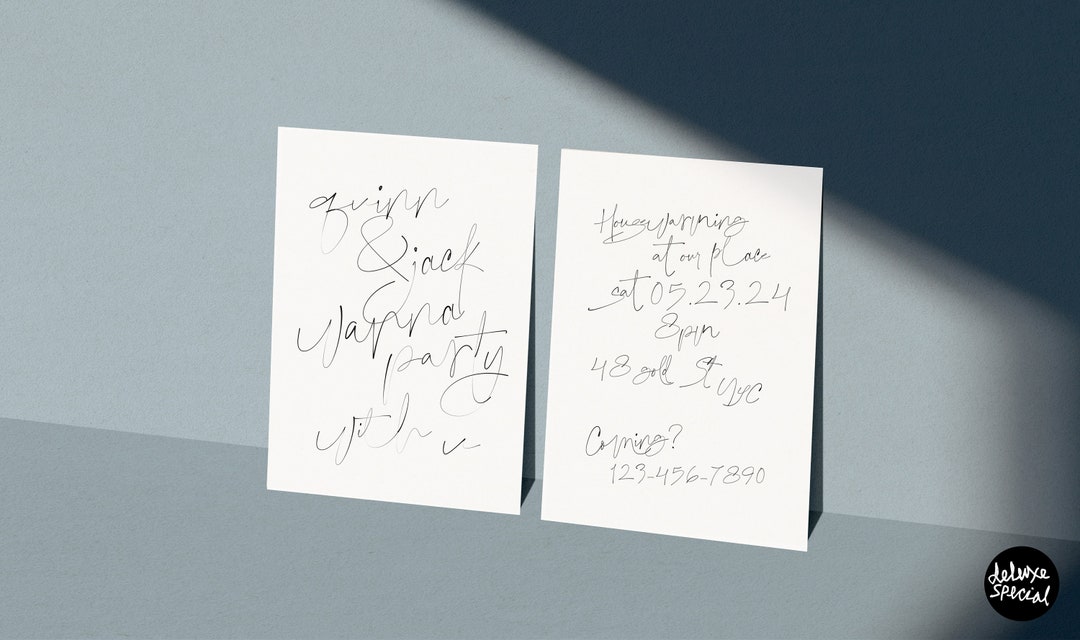 quinn
& jack
wanna
party
with u
Housewarming
at our place
sat 05.23.24
8pm
48 gold St NYC
Coming?
123-456-7890
deluxe
special